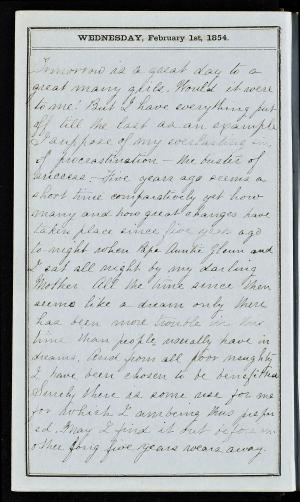 WEDNESDAY, February 1st, 1854.
Tomorrow is a great day to a
great many girls. Would it were
to me! But I have everything put
off till the last as an example
I suppose of my everlasting sin,
of procrastination – the buster of
success – Five years ago seems a
short time comparatively yet how
many and how great changes have
taken place since five years ago
to night when Papa Auntie and
I sat all night by my darling
Mother All the time since then
seems like a dream only there
has been more trouble in the
time than people usually have in
dreams. And from all poor naughty
I have been chosen to be benefitted
Surely there is some use for me
for which I am being thus prepar
ed. May I find it out before an
other long five years wears away.